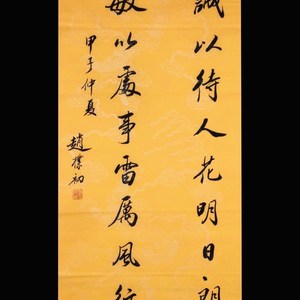 誠以待人花明日朗
敏以處事雷厲風行
甲子仲夏
趙樸初